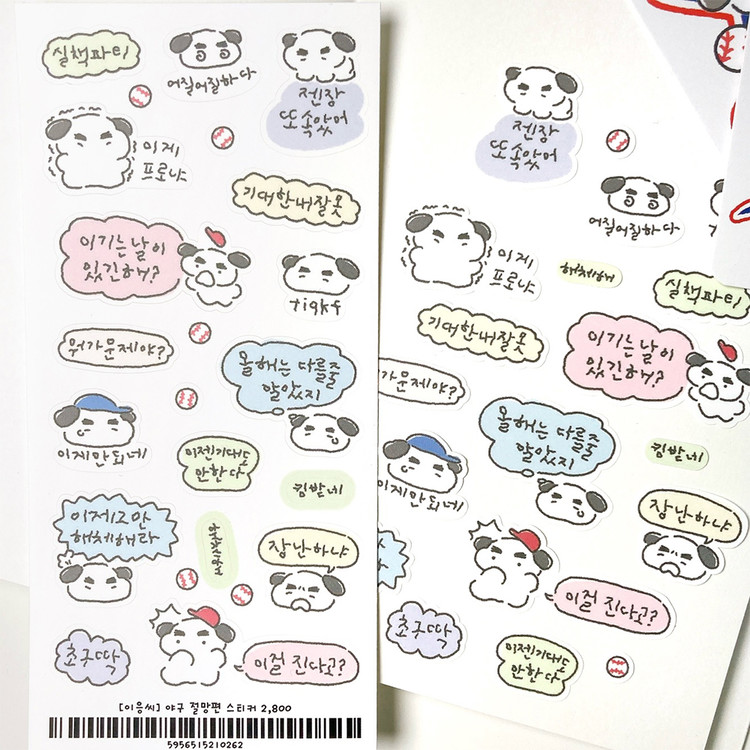 실책파티
어질어질하다
젠장
또 속았어
이게
프로냐
기대한내잘못
이기는날이
있긴해?
tlqkf
뭐가문제야?
올해는 다를줄
알았지
이게안되네
이젠기대도
안한다
킹받네
이제그만
해체해라
장난하냐
초구딱
이걸 진다고?
[이응씨] 야구 절망편 스티커 2,800
5956515210262
젠장
또 속았어
어질어질하다
이게
프로냐
해체해
실책파티
기대한내잘못
이기는날이
있긴해?
가문제야?
올해는 다를줄
알았지
킹받네
이게안되네
장난하냐
이걸 진다고?
초구딱
이젠기대도
안한다